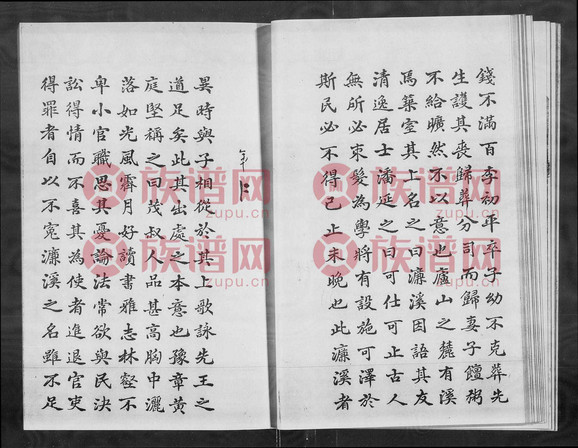 錢不滿百李初年卒子幼不克葬先
生護其喪歸葬分司而歸妻子饘粥
不給曠然不以意也廬山之麓有溪
焉築室其上名之曰濂溪因語其友
清逸居士潘延之曰可仕可止古人
無所必束髮為學將有設施可澤於
斯民必不得已止未晚也此濂溪者
異時與子相從於其上歌詠先王之
道足矣此其出處之本意也豫章黃
庭堅稱之曰茂叔人品甚高胸中灑
落如光風霽月好讀書雅志林壑不
卑小官職思其憂論法常欲與民決
訟得情而不喜其為使者進退官吏
得罪者自以不寃濂溪之名雖不足
族谱网
zupu.cn
族谱网
zupu.cn
族谱网
zupu.cn
族谱网
zupu.cn